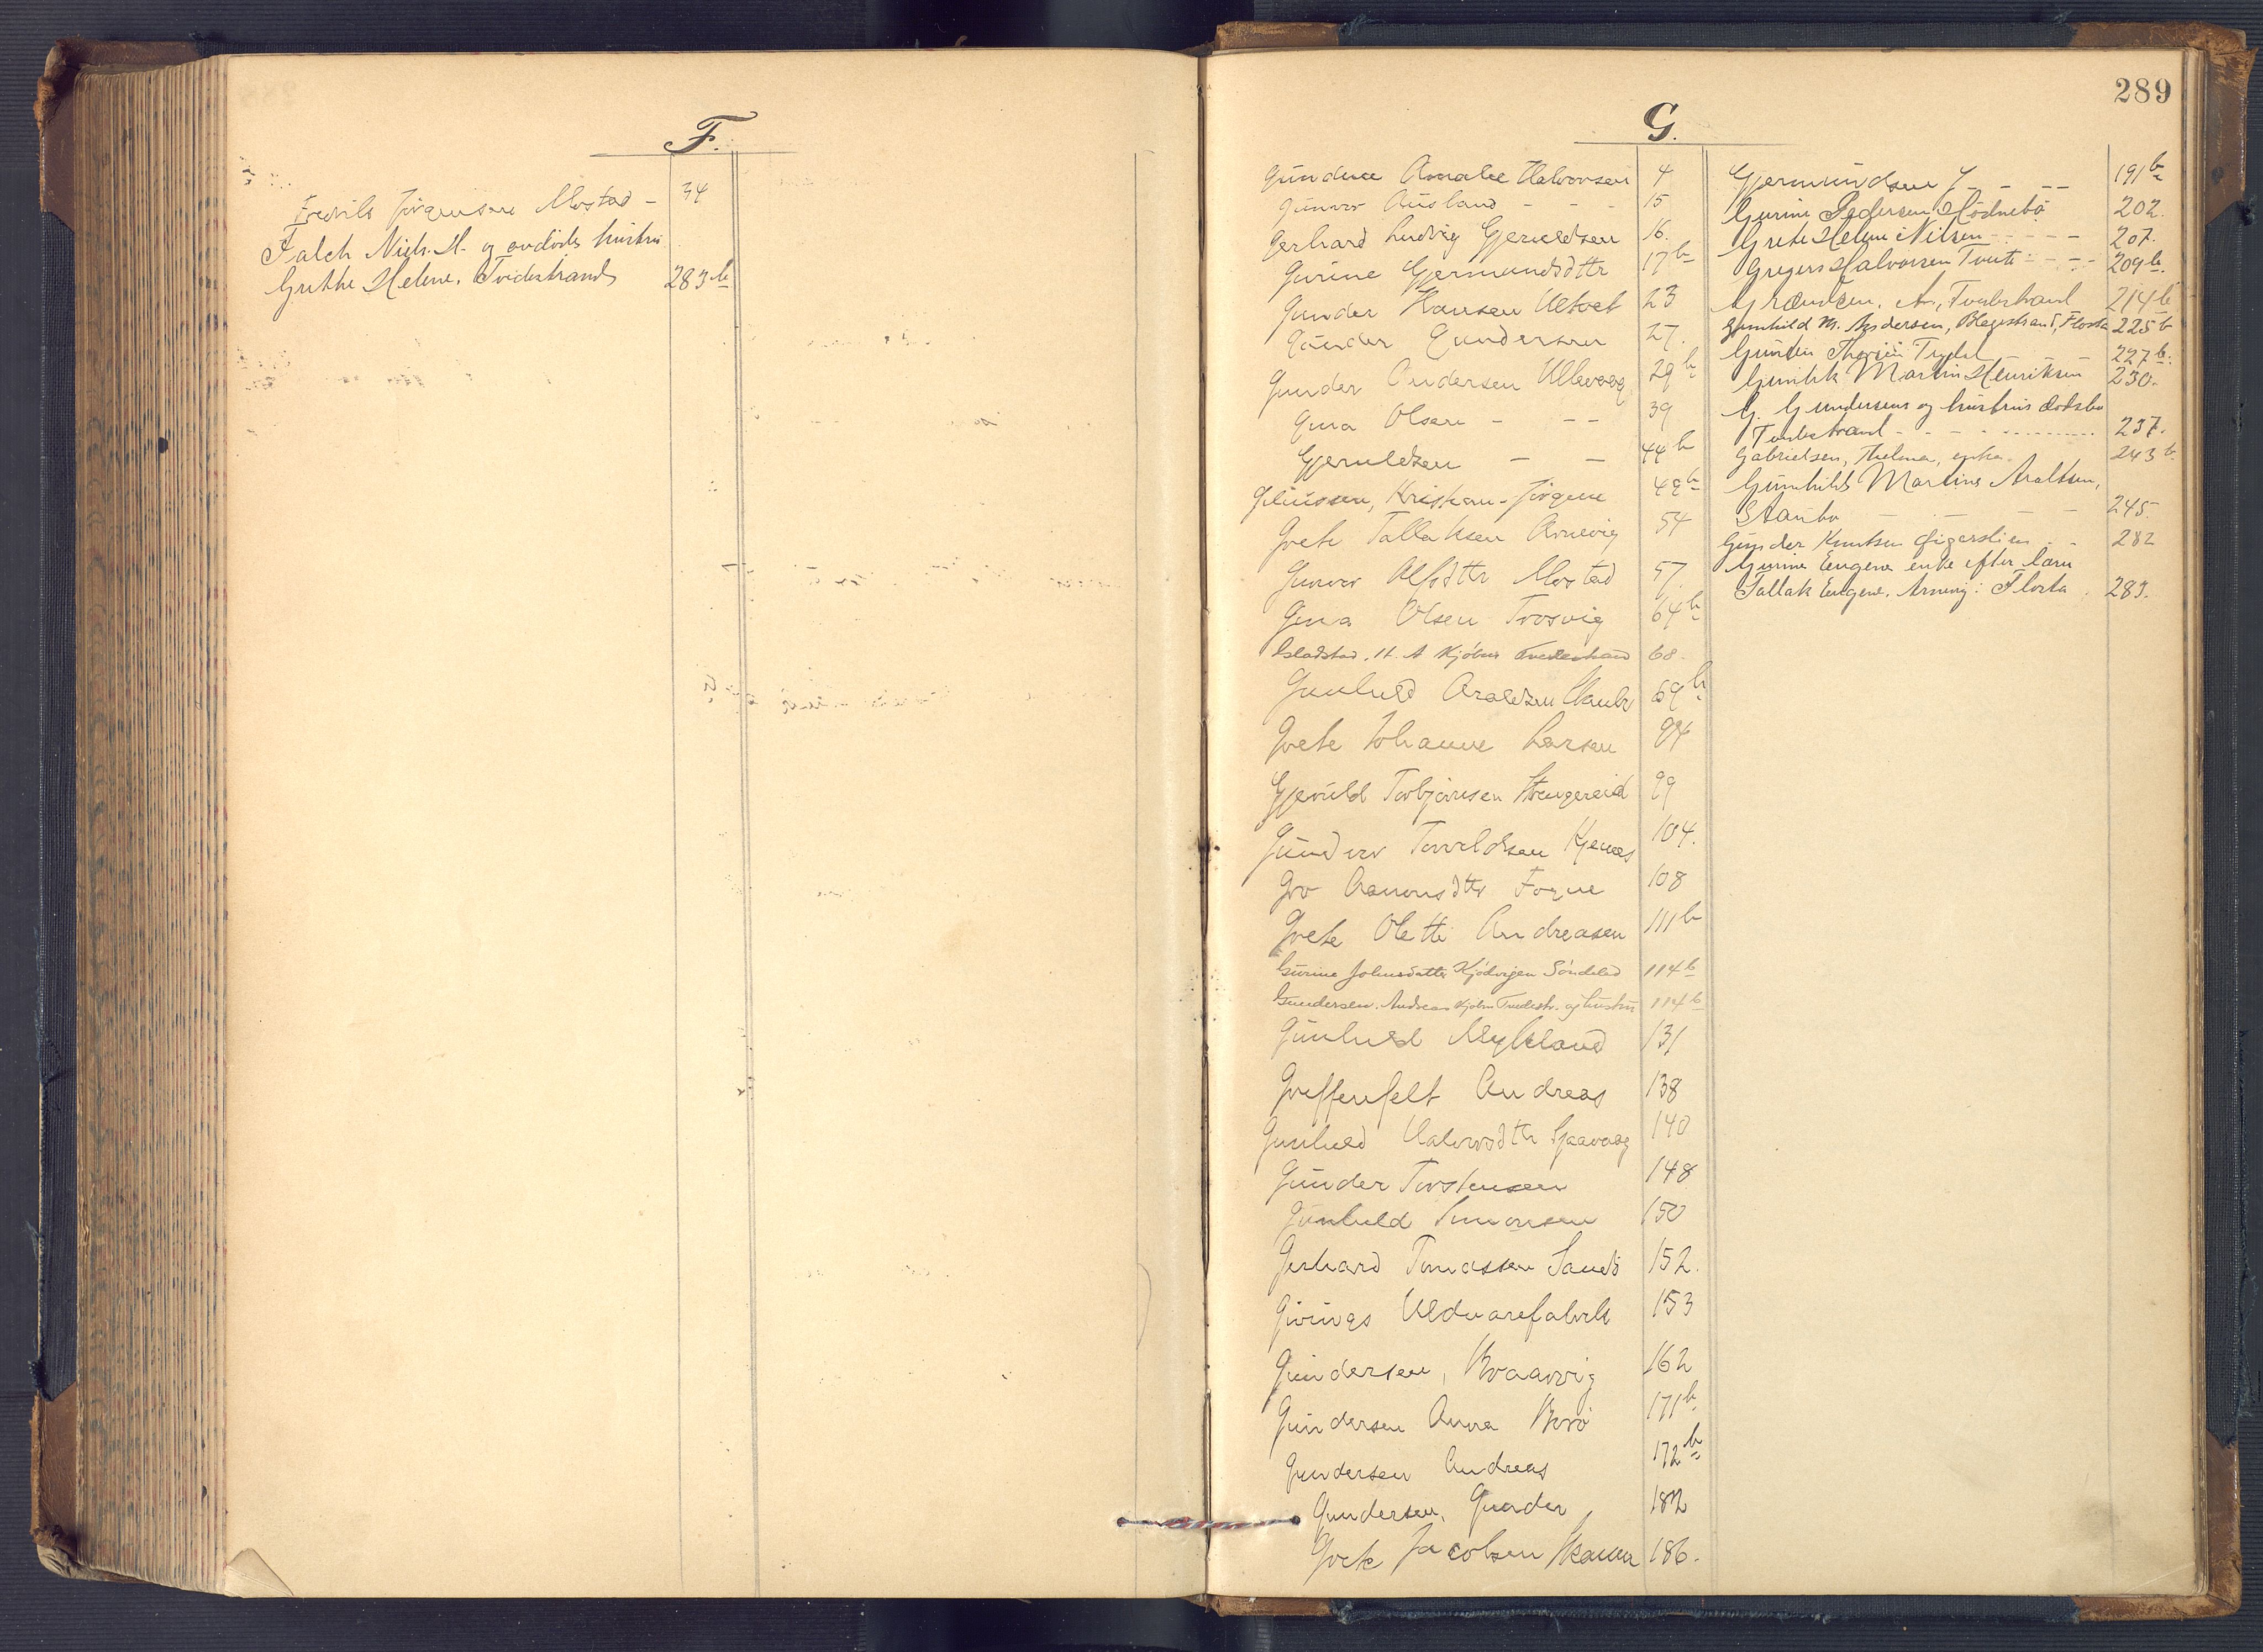 F.
Fredrik Jörgensen Mostad - 34
Falch Niels. H. og avdöde hustru
Grethe Helene. Tvedestrand 283 b
289
G.
Gundine Amalie Halvorsen 4
Gunvor Ausland - - - 15
Gerhard Ludvig Gjeruldsen 16.
Gurine Gjermundsdtr 17 b
Gunder Hansen 23
Gunder Gundersen 27.
Gunder Andersen Ullevaag 29 b
Gina Olsen - - - 39
Gjeruldsen - - 44 b
Kristian Jörgen 49 b
Grete Tallaksen Arnevig 54
Gunvor Alfsdtr Mostad 57.
Gina Olsen Trosvig 64 b
Gladstad. H. A Kjöbm Tvedestrand 68.
Gunhild Araldsen Staubö 69 b
Grete Johanne Larsen 94
Gjeruld Torbjörnsen Strengereid 99
Gunder Torvildsen Kjenes 104.
Gro Aamonsdtr Fogne 108
Grete Olette Andreasen 111 b
Gurine Johnsdatter Kjödvigen Söndeled 114 b
Gundersen. Andreas Kjöbm Tvedestr. og hustru 114 b
Gunhild Mykland 131
Greffenfelt Andreas 138
Gunhild Halvorsdtr 140
Gunder Torstensen 150 148
Gunhild Simonsen 150
Gerhard Tomassen Sandö 152.
Grinings Uldvarefabrik 153
Gundersen, Kraavig 162
Gundersen Anna Borö 171 b
Gundersen Andreas 172 b
Gundersen, Gunder 182
Grete Jacobsen 186.
Gjermundsen J - - - - 191 b
Gurine Pedersen Hödnebö 202.
Grete Helene Nilsen - - - - 207.
Gregers Halvorsen Tveite - - - 209 b.
A., Tvedestrand 214 b
Gunhild M. Andersen, Blagestrand, Flosta 225 b
Gunder Tveden 227 b.
Gunhild Martin Henriksen 230.
G. Gundersens og hustrus dödsbo
Tvedestrand - - - - 237.
Gabrielsen, Thelma, enke. 243 b
Gunhild Martine Araldsen,
Staubö - - - - 245.
Gunder Knutsen - - 282
Gurine Eugene enke efter
Tallak Eugene. Arnevig i Flosta 283.